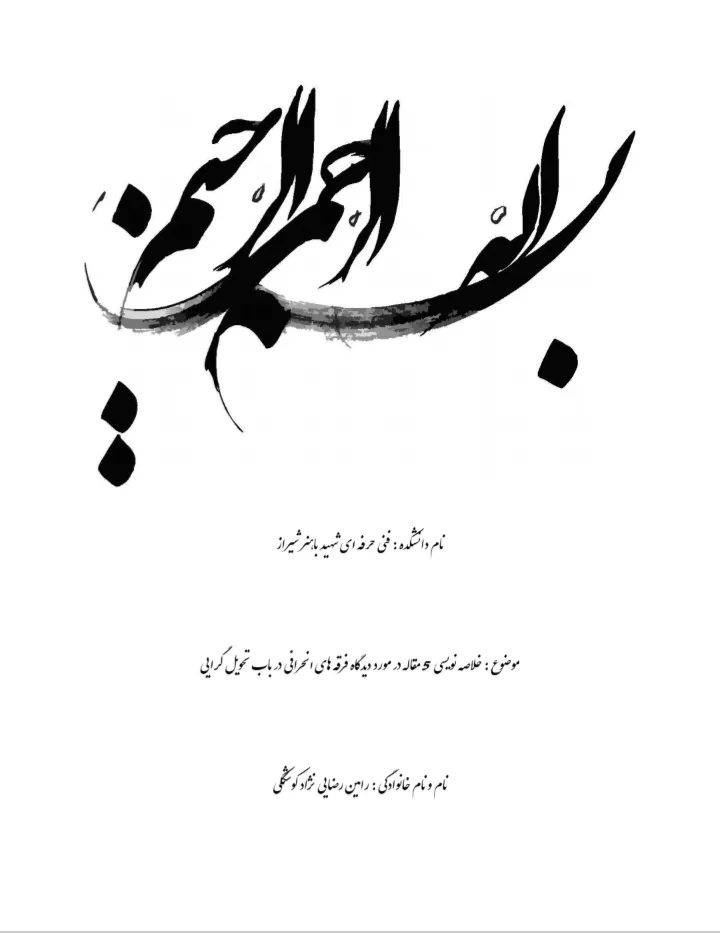 بسم الله الرحمن الرحیم
نام دانشکده : فنی حرفه ای شهید باهنر شیراز
موضوع : خلاصه نویسی 5 مقاله در مورد دیدگاه فرقه های انحرافی در باب تحویل گرایی
نام و نام خانوادگی : رامین رضایی نژاد کوشکی